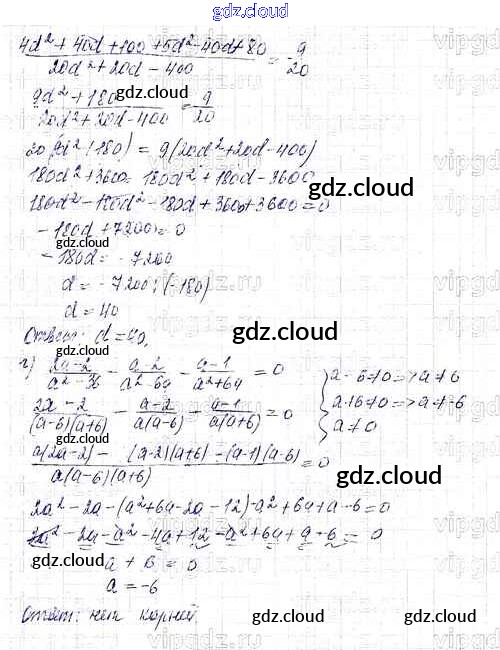 gdz.cloud
(4d² + 40d + 100 + 5d² - 40d + 80) / (20d² + 20d - 400) = 9/20
(9d² + 180) / (20d² + 20d - 400) = 9/20
gdz.cloud
20(9d² + 180) = 9(20d² + 20d - 400)
180d² + 3600 = 180d² + 180d - 3600
gdz.cloud
180d² - 180d² - 180d + 3600 + 3600 = 0
- 180d + 7200 = 0
gdz.cloud
- 180d = - 7200
d = - 7200 : (-180)
d = 40
Ответ: d = 40.
gdz.cloud
г) (2a - 2)/(a² - 36) - (a - 2)/(a² - 6a) - (a - 1)/(a² + 6a) = 0
a - 6 ≠ 0 => a ≠ 6
(2a - 2)/((a - 6)(a + 6)) - (a - 2)/(a(a - 6)) - (a - 1)/(a(a + 6)) = 0
a + 6 ≠ 0 => a ≠ -6
a ≠ 0
(a(2a - 2) - (a - 2)(a + 6) - (a - 1)(a - 6)) / (a(a - 6)(a + 6)) = 0
gdz.cloud
2a² - 2a - (a² + 6a - 2a - 12) - a² + 6a + a - 6 = 0
2a² - 2a - a² - 4a + 12 - a² + 6a + a - 6 = 0
gdz.cloud
a + 6 = 0
a = -6
Ответ: нет корней.
gdz.cloud
gdz.cloud
gdz.cloud